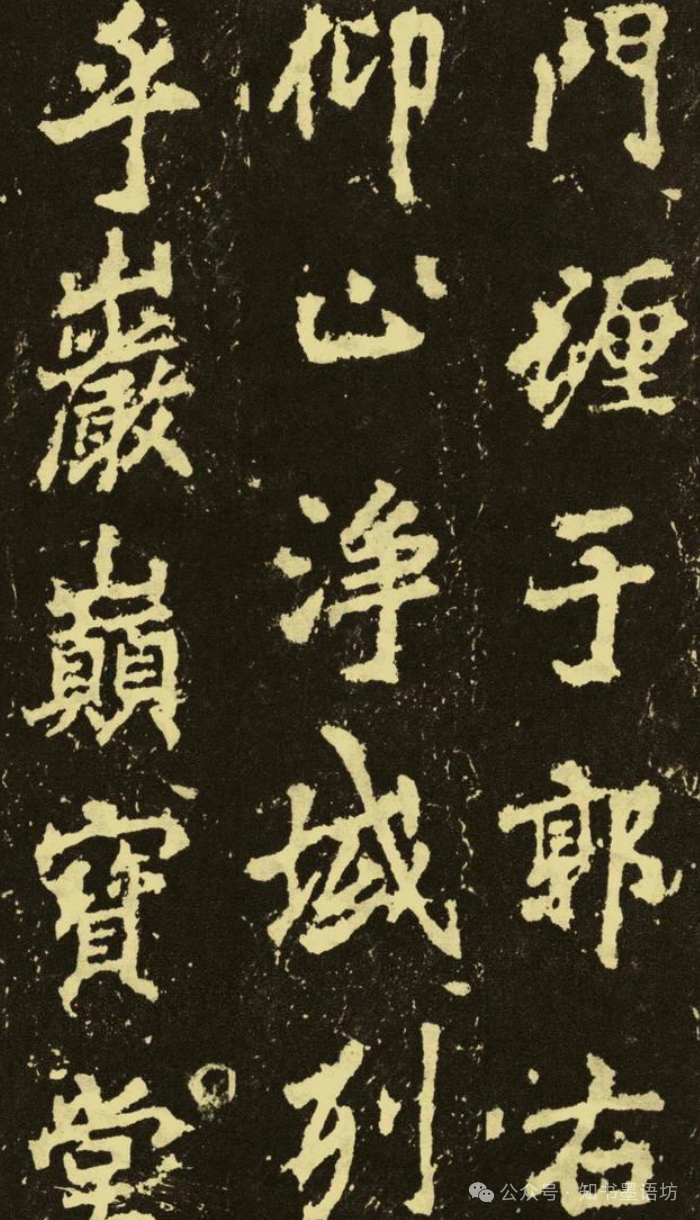 門纏于郭右
仰止淨域列
乎巖巔寶堂
公众号·知书墨语坊